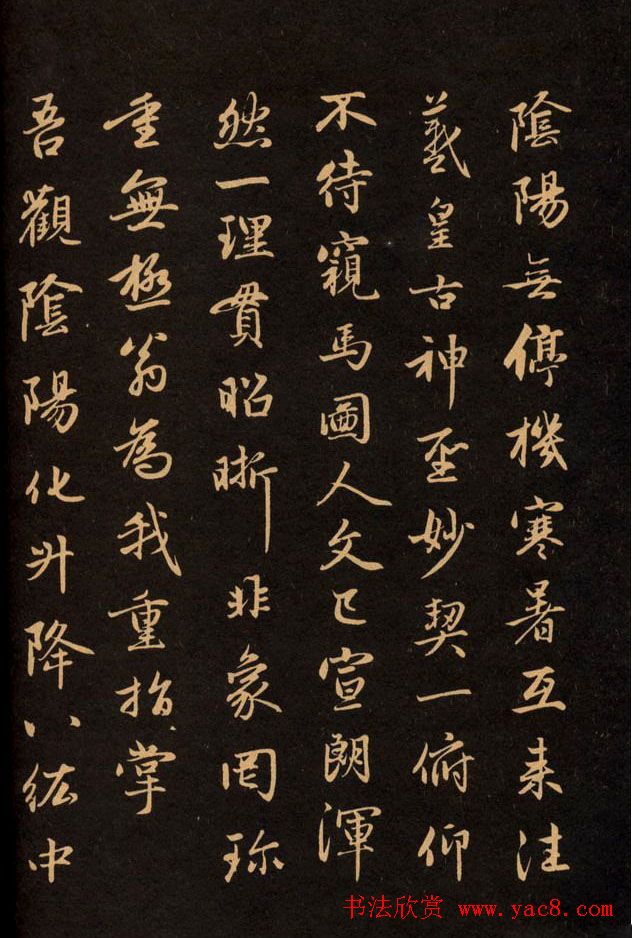 陰陽無停機寒暑互来往
羲皇古神聖妙契一俯仰
不待窺馬圖人文已宣朗渾
然一理貫昭晰非象罔珎
重無極翁為我重指掌
吾觀陰陽化升降八紘中
书法欣赏 www.yac8.com